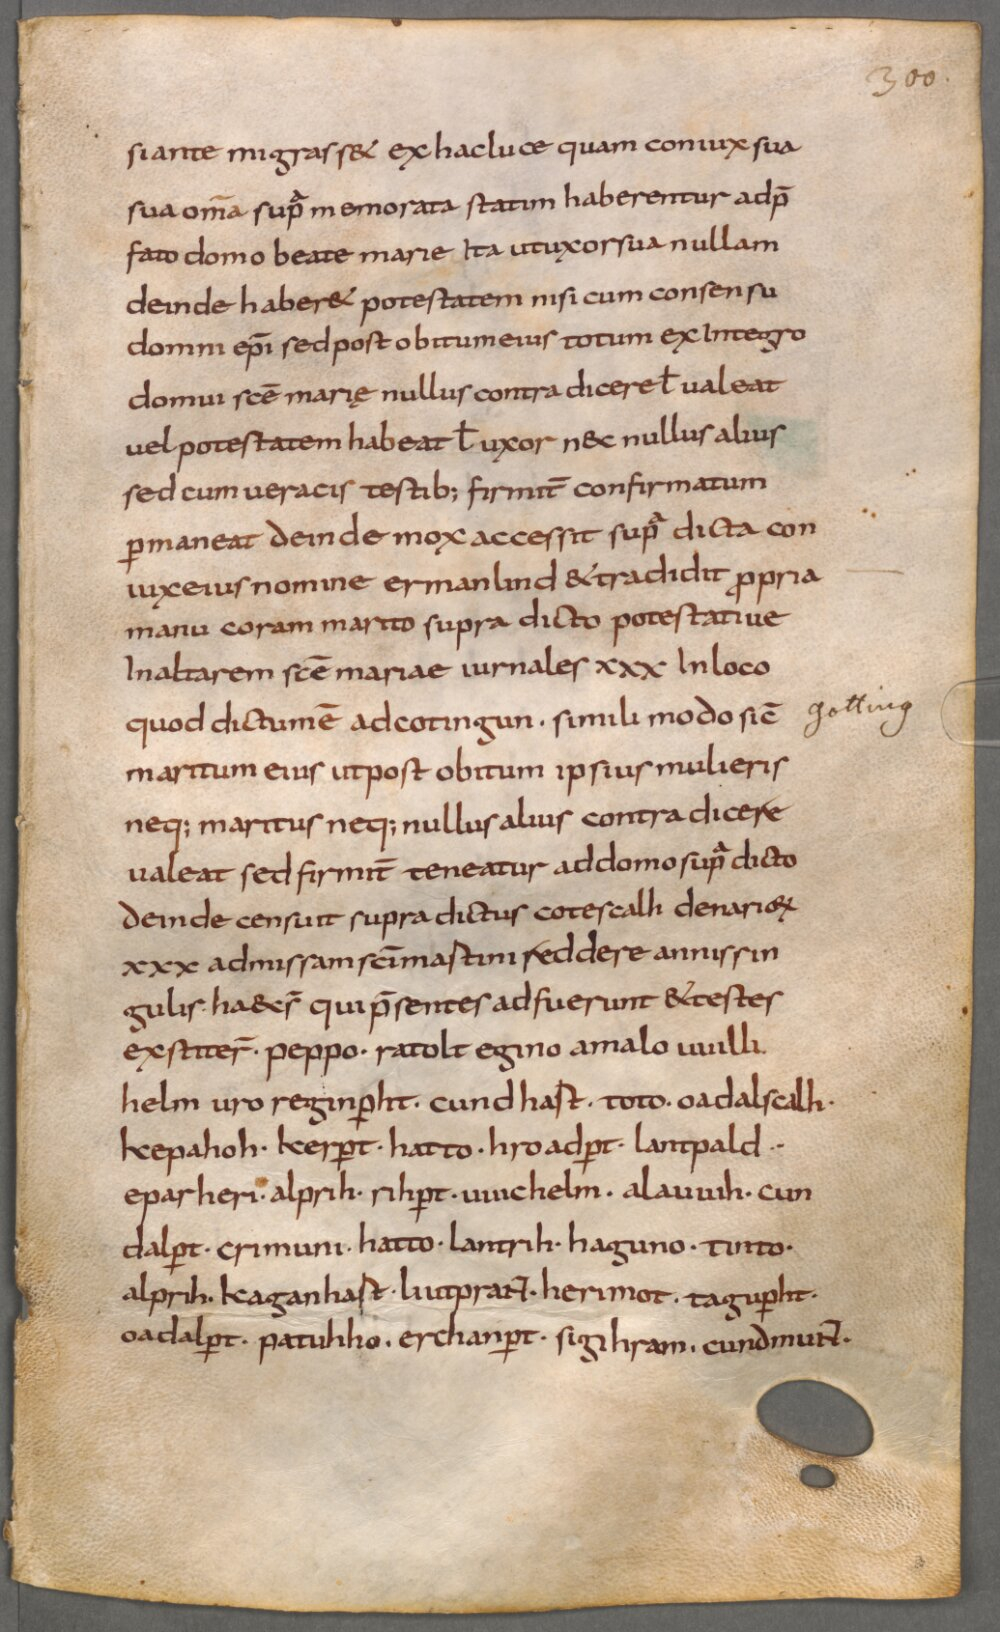 300.
si ante migrass& ex hac luce quam coniux sua
sua om̄a sup̄ᵃ memorata statim haberentur ad p̄
fato domo beate marie Ita ut uxor sua nullam
deinde haber& potestatem nisi cum consensu
domni ep̄i sed post obitum eius totum ex Integro
domui scē marię nullus contradicere ł ualeat
uel potestatem habeat ł uxor n&c nullus alius
sed cum ueracis testib; firmit̄ confirmatum
ꝑmaneat deinde mox accessit sup̄ᵃ dicta con
iux eius nomine ermanlind & tradidit ꝓpria
manu coram marito supra dicto potestatiue
In altarem scē mariae iurnales xxx In loco
quod dictum ē ad cotingun · simili modo sic̄
gotting
maritum eius ut post obitum ipsius mulieris
neq; maritus neq; nullus alius contradicere
ualeat sed firmit̄ teneatur ad domo sup̄ᵃ dicto
deinde censuit supra dictus cotescalh denarioꝝ
xxx ad missam sc̄i mastini reddere annis sin
gulis · ha& s̄ qui p̄sentes adfuerunt & testes
exstiter̄ · peppo · ratolt egino amalo uuilli
helm uro reginꝑht · cundhast · toto · oadalscalh ·
kepahoh · kerꝑt · hatto · hroadꝑt · lantpald ·
eparheri · alprih · rihꝑt · uuichelm · alauuih · cun
dalꝑt · crimuni · hatto · lantrih · haguno · tinto ·
alprih · kaganhast · liutprant · herimot · taguꝑht ·
oadalꝑt · patuhho · erchanꝑt · sigihram · cundmunt ·